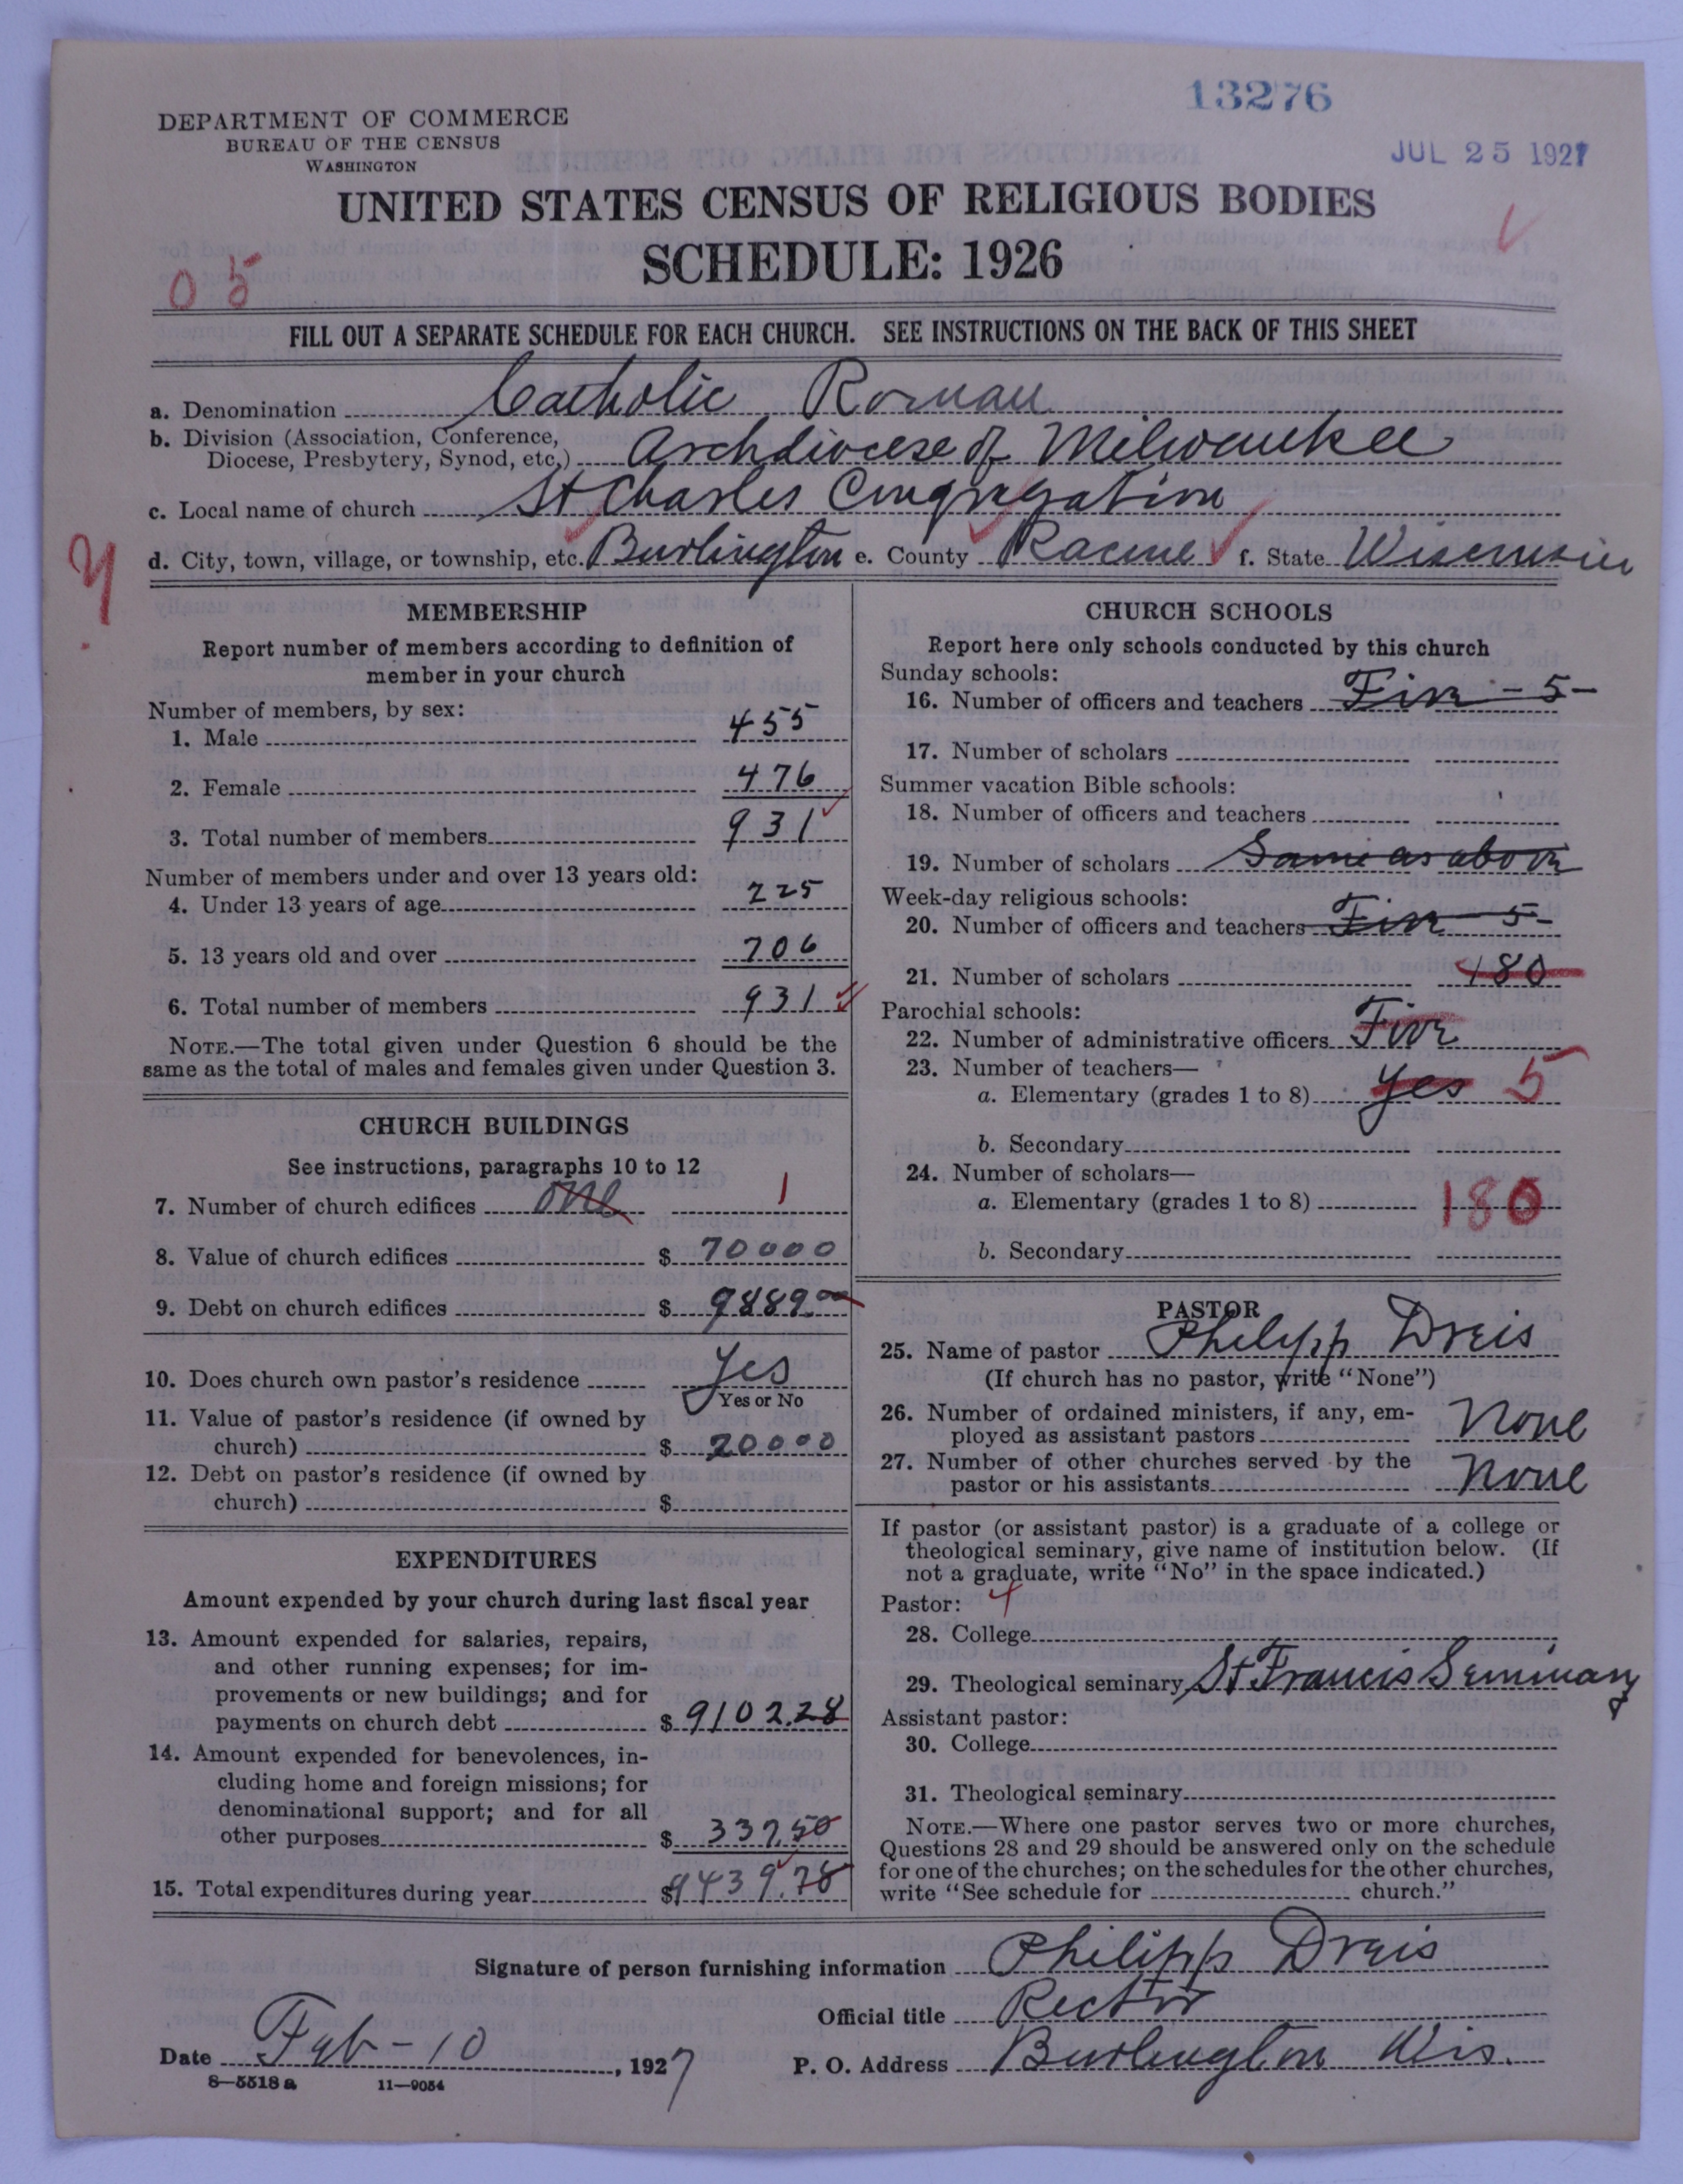 13276
JUL 25 1927
DEPARTMENT OF COMMERCE
BUREAU OF THE CENSUS
WASHINGTON
UNITED STATES CENSUS OF RELIGIOUS BODIES
SCHEDULE: 1926
05
FILL OUT A SEPARATE SCHEDULE FOR EACH CHURCH. SEE INSTRUCTIONS ON THE BACK OF THIS SHEET
a. Denomination Catholic Roman
b. Division (Association, Conference,
Diocese, Presbytery, Synod, etc.) Archdiocese of Milwaukee
c. Local name of church St Charles Congregation
d. City, town, village, or township, etc. Burlington e. County Racine f. State Wisconsin
MEMBERSHIP
Report number of members according to definition of
member in your church
Number of members, by sex:
1. Male 455
2. Female 476
3. Total number of members 931
Number of members under and over 13 years old:
4. Under 13 years of age 225
5. 13 years old and over 706
6. Total number of members 931
NOTE.—The total given under Question 6 should be the
same as the total of males and females given under Question 3.
CHURCH BUILDINGS
See instructions, paragraphs 10 to 12
7. Number of church edifices one 1
8. Value of church edifices $ 70000
9. Debt on church edifices $ 9889.00
10. Does church own pastor's residence Yes
Yes or No
11. Value of pastor's residence (if owned by
church) $ 20000
12. Debt on pastor's residence (if owned by
church) $
EXPENDITURES
Amount expended by your church during last fiscal year
13. Amount expended for salaries, repairs,
and other running expenses; for im-
provements or new buildings; and for
payments on church debt $ 9102.28
14. Amount expended for benevolences, in-
cluding home and foreign missions; for
denominational support; and for all
other purposes $ 337.50
15. Total expenditures during year $9439.78
CHURCH SCHOOLS
Report here only schools conducted by this church
Sunday schools:
16. Number of officers and teachers Five - 5-
17. Number of scholars
Summer vacation Bible schools:
18. Number of officers and teachers
19. Number of scholars Same as above
Week-day religious schools:
20. Number of officers and teachers Five 5-
21. Number of scholars 180
Parochial schools:
22. Number of administrative officers Five
23. Number of teachers—
a. Elementary (grades 1 to 8) Yes 5
b. Secondary
24. Number of scholars—
a. Elementary (grades 1 to 8) 180
b. Secondary
PASTOR
25. Name of pastor Philipp Dreis
(If church has no pastor, write "None")
26. Number of ordained ministers, if any, em-
ployed as assistant pastors None
27. Number of other churches served by the
pastor or his assistants None
If pastor (or assistant pastor) is a graduate of a college or
theological seminary, give name of institution below. (If
not a graduate, write "No" in the space indicated.)
Pastor: 4
28. College
29. Theological seminary St Francis Seminary
Assistant pastor:
30. College
31. Theological seminary
NOTE.—Where one pastor serves two or more churches,
Questions 28 and 29 should be answered only on the schedule
for one of the churches; on the schedules for the other churches,
write "See schedule for church."
Signature of person furnishing information Philipp Dreis
Official title Rector
Date Feb-10, 1927 P. O. Address Burlington Wis.
8-5518a 11-9054